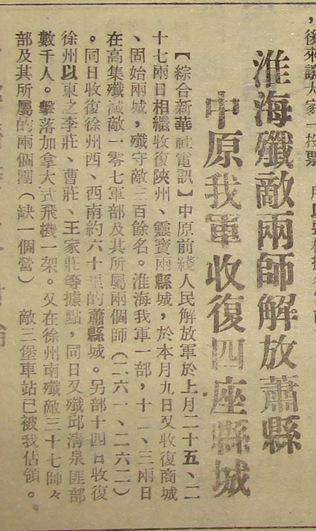 淮海殲敵兩師解放蕭縣
中原我軍收復四座縣城
【綜合新華社電訊】中原前綫人民解放軍於上月二十五、二
十七兩日相繼收復陝州、靈寶兩縣城，於本月九日又收復商城
、固始兩城，殲守敵三百餘名。淮海我軍一部，十一、三兩日
在高集殲滅敵一零七軍部及其所屬兩個師（二六一、二六二）
。同日收復徐州西、西南約六十里的蕭縣城。另部十四日收復
徐州以東之李莊、曹莊、王家莊等據點 同日又殲邱清泉匪部
數千人。擊落加拿大式飛機一架。又在徐州南殲敵三十七師々
部及其所屬的兩個團（缺一個營） 敵三堡車站已被我佔領。